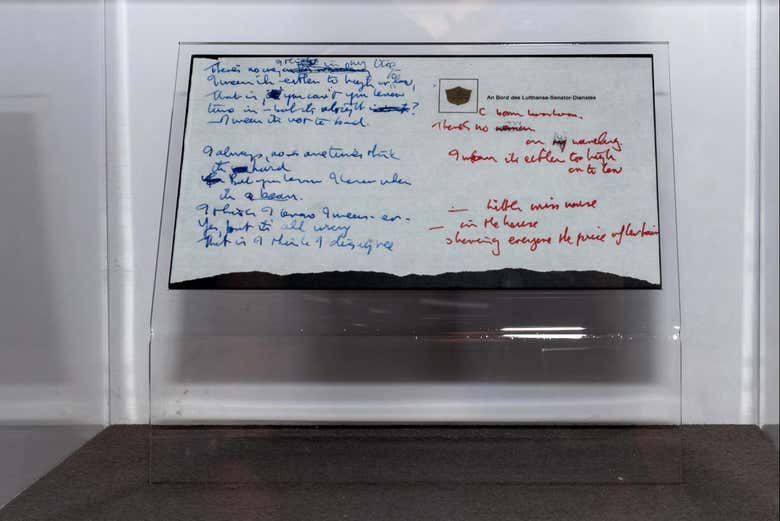 There's no in my tree
I mean its either to high or low,
that is, you can't you know
tune in - but its alright?
I mean its not to bad.
I always, no sometimes think
its hard
But you know I know when
its a dream.
I think I know I mean - er -
Yes, but its all wrong
that is I think I disagree
An Bord des Lufthansa-Senator-Dienstes
There's no
on my wavelength
I mean its either too high
or to low
— little miss
— in the house
showing everyone the price of